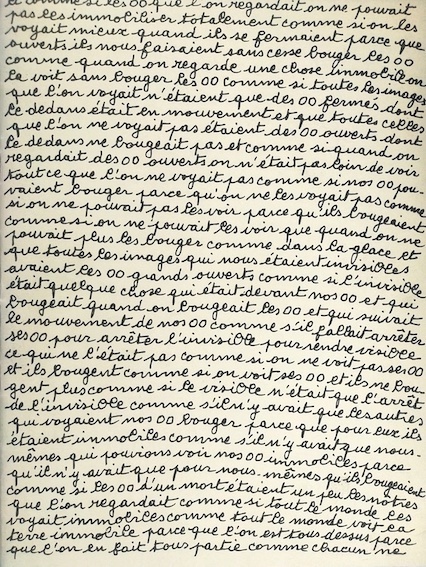 et comme si les OO que l'on regardait on ne pouvait
pas les immobiliser totalement comme si on les
voyait mieux quand ils se fermaient parce que
ouverts ils nous faisaient sans cesse bouger les OO
comme quand on regarde une chose immobile on
la voit sans bouger les OO comme si toutes les images
que l'on voyait n'étaient que des OO fermés dont
le dedans était en mouvement et que toutes celles
que l'on ne voyait pas étaient des OO ouverts dont
le dedans ne bougeait pas et comme si quand on
regardait des OO ouverts on n'était pas loin de voir
tout ce que l'on ne voyait pas comme si nos OO pou-
vaient bouger parce qu'on ne les voyait pas comme
si on ne pouvait pas les voir parce qu'ils bougeaient
comme si on ne pouvait les voir que quand on ne
pouvait plus les bouger comme dans la glace et
que toutes les images qui nous étaient invisibles
avaient les OO grands ouverts comme si l'invisible
était quelque chose qui était devant nos OO et qui
bougeait quand on bougeait les OO et qui suivait
le mouvement de nos OO comme s'il fallait arrêter
ses OO pour arrêter l'invisible pour rendre visible
ce qui ne l'était pas comme si on ne voit pas ses OO
et ils bougent comme si on voit ses OO et ils ne bou-
gent plus comme si le visible n'était que l'arrêt
de l'invisible comme s'il n'y avait que les autres
qui voyaient nos OO bouger parce que pour eux ils
étaient immobiles comme s'il n'y avait que nous-
mêmes qui pouvions voir nos OO immobiles parce
qu'il n'y avait que pour nous-mêmes qu'ils bougeaient
comme si les OO d'un mort étaient un peu les nôtres
que l'on regardait comme si tout le monde les
voyait immobiles comme tout le monde voit la
terre immobile parce que l'on est tous dessus parce
que l'on en fait tous partie comme chacun ne